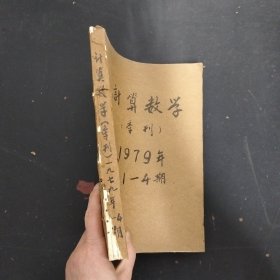 計算数学
(季刊)
1979年
1-4期
计算数学(季刊)一九七九年1-4期